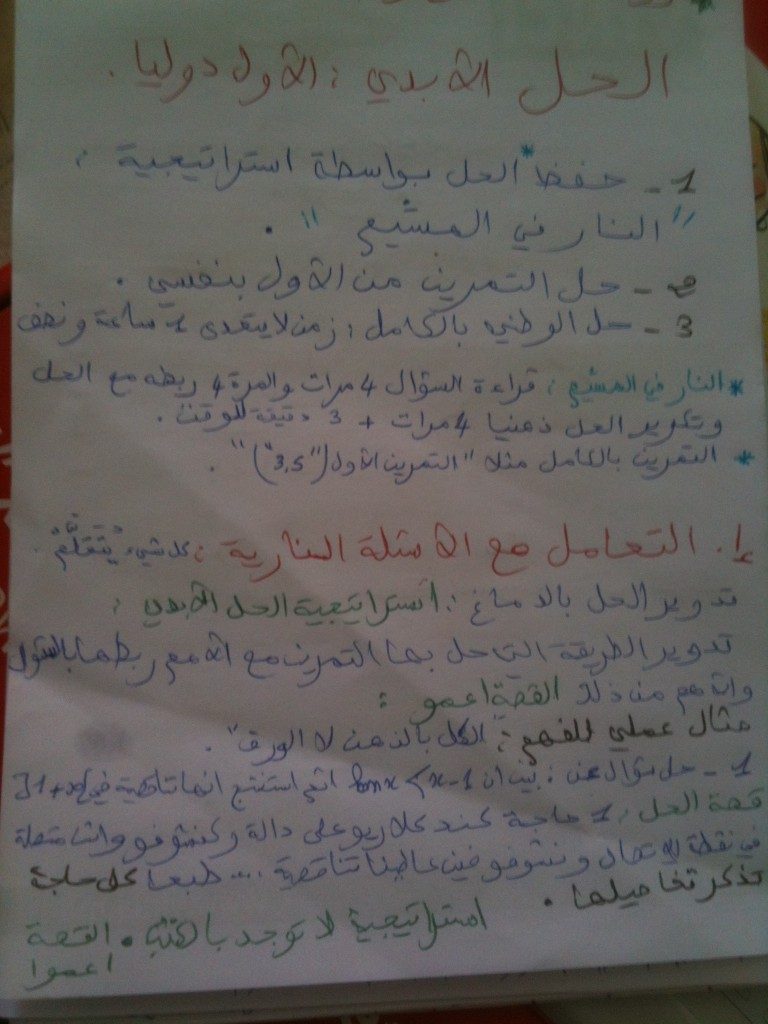 الحل الأبدي : الأول دوليا .
1 - حفظ* الحل بواسطة استراتيجية :
" النار في المشيع " .
2 - حل التمرين من الأول بنفسي .
3 - حل الوطني بالكامل : زمن لا يتعدى 1 ساعة و نصف
* النار في المشيع : قراءة السؤال 4 مرات والمرة 4 ربطه مع الحل
وتكرير الحل ذهنيا 4 مرات + 3 دقيقة للوقت .
* التمرين بالكامل مثلا " التمرين الأول ("3,5") " .
I. التعامل مع الأسئلة النارية : كل شيء يُتَعَلَّمُ .
تدوير الحل بالدماغ : استراتيجية الحل الأبدي :
تدوير الطريقة التي حل بها التمرين مع الأم مع ربطها بالسؤال
والأهم من ذلك القصة اعمو :
مثال عملي للفهم : "الكل بالذهن لا الورق" .
1 - حل سؤال عن : بين أن ln x < x-1 استنتج انها تناقصية في ]1+∞[
قصة الحل : 1 حاجة كند كلاريو على دالة وكنشوفو واش متصلة
في نقطة الاتصال ونشوفو فين تناقصية .... طبعا كل حاجة
تذكر تفاصيلها .
استراتيجية لا توجد بالكتب . القصة
اعموا